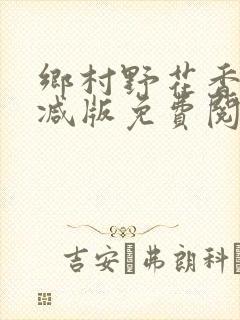 鄉村野花香
减版免費閱
吉安 弗朗科